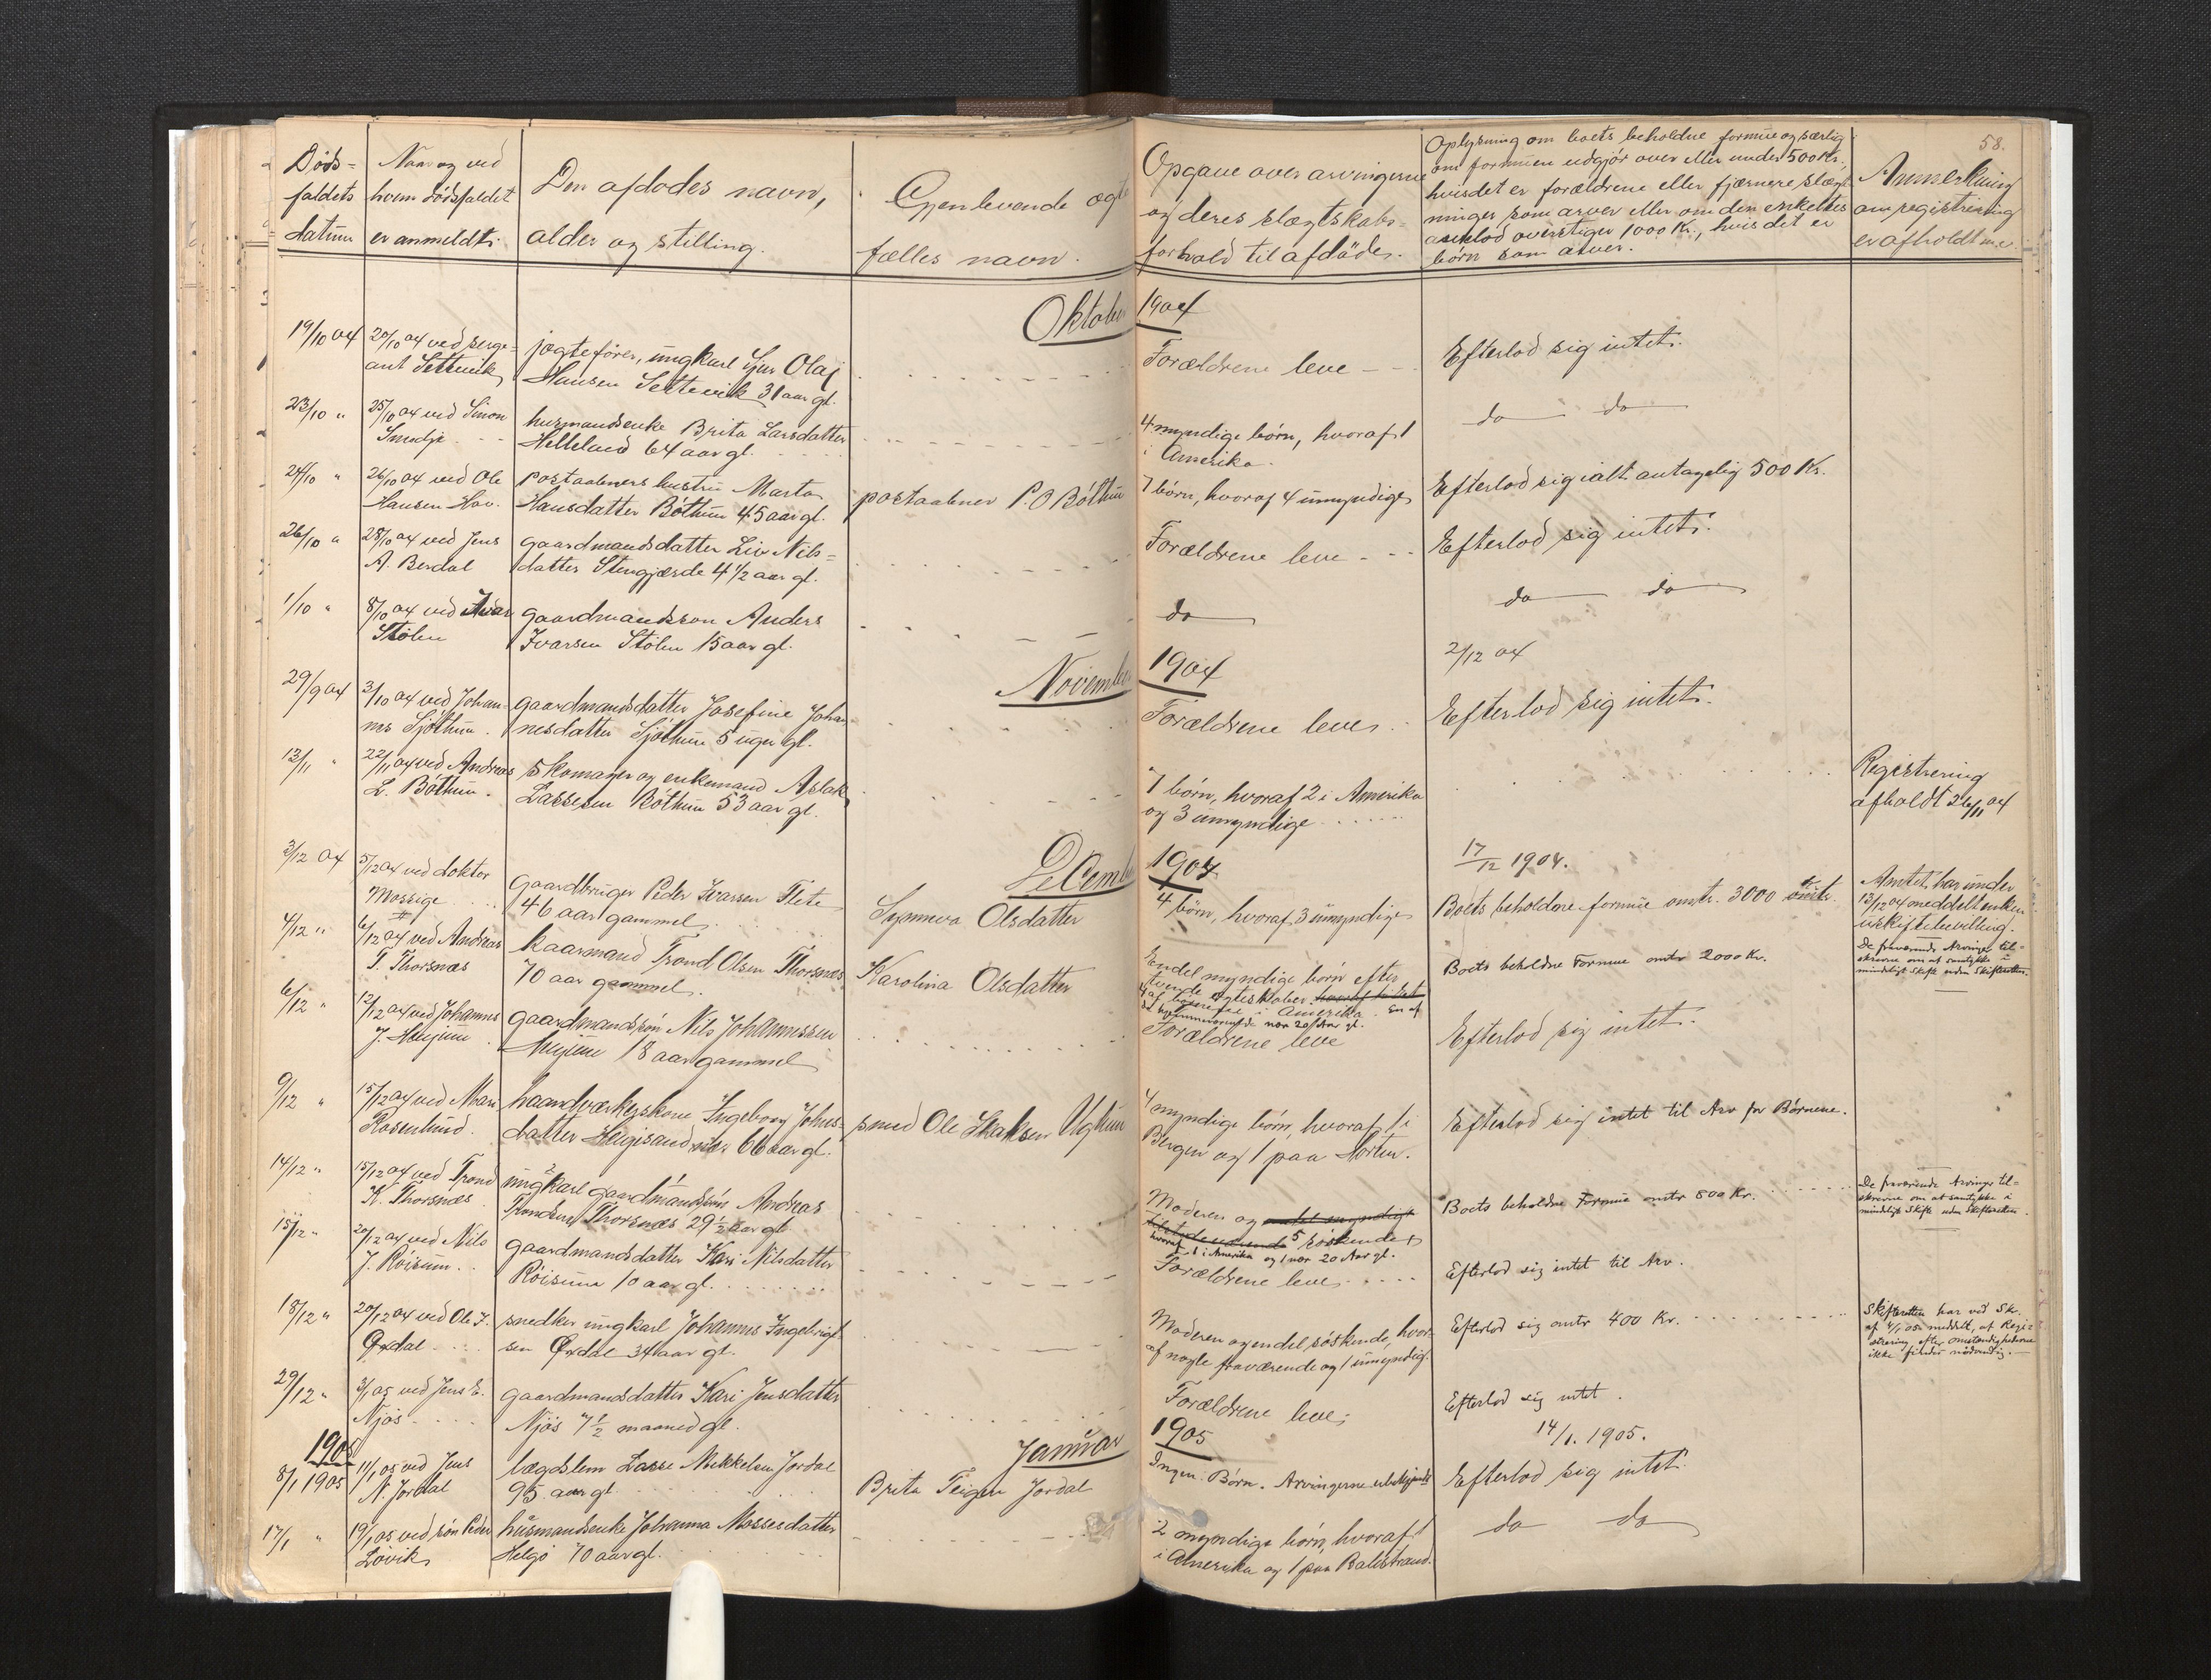 58.
Døds-
faldets
datum
Naar og ved
hvem dødsfaldet
er anmeldt.
Den afdødes navn,
alder og stilling.
Gjenlevende ægte
fælles navn.
Opgave over arvingerne
og deres slægtskabs-
forhold til afdøde.
Oplysning om boets beholdne formue og særlig
om formuen udgjør over eller under 500 Kr.,
hvis det er forældrene eller fjærnere slægt-
ninger som arver eller om den enkeltes
arvelod overstiger 1000 Kr., hvis det er
børn som arver.
Anmerkning
om registrering
er afholdt m.v.
Oktober 1904
19/10 04
20/10 04 ved serge-
ant Settevik
jægtefører, ungkarl Sjur Olaj
Hansen Settevik 31 aar gl.
Forældrene leve
Efterlod sig intet.
23/10 "
25/10 04 ved Simon
Smedje
husmandsenke Brita Larsdatter
Helleland 64 aar gl.
4 myndige børn, hvoraf 1
i Amerika.
do do
24/10 "
26/10 04 ved Ole
Hansen Hov.
postaabners hustru Marta
Hansdatter Bøthun 45 aar gl.
postaabner P. O Bøthun
7 børn, hvoraf 4 umyndige
Efterlod sig ialt antagelig 500 Kr.
26/10 "
28/10 04 ved Jens
A. Berdal
gaardmandsdatter Liv Nils-
datter Stengjærde 4 1/2 aar gl.
Forældrene leve
Efterlod sig intet.
1/10 "
8/10 04 ved Ivar
Stølen
gaardmandssøn Anders
Ivarsen Stølen 15 aar gl.
do
do do
2/12 04
November 1904
29/9 04
3/10 04 ved Johan-
nes Sjøthun.
gaardmandsdatter Josefine Johan-
nesdatter Sjøthun 5 uger gl.
Forældrene leve
Efterlod sig intet.
13/11 "
22/11 04 ved Andreas
L. Bøthun.
Skomager og enkemand Aslak
Lassesen Bøthun 53 aar gl.
7 børn, hvoraf 2 i Amerika
og 3 umyndige
Registrering
afholdt 26/11 04
December 1904
17/12 1904.
3/12 04
5/12 04 ved doktor
Mossige
gaardbruger Peder Ivarsen Flete
46 aar gammel
Synneva Olsdatter
4 børn, hvoraf 3 umyndige
Boets beholdne formue omtr. 3000
Amtet har under
13/12 04 meddelt enken
uskiftebevilling.
4/12 "
6/12 04 ved Andreas
T. Thorsnæs
kaarmand Trond Olsen Thorsnæs
70 aar gammel.
Karolina Olsdatter
Endel myndige børn efter
tvende Ægteskaber.
i Amerika. En af
nær 20 Aar gl.
Boets beholdne Formue omtr 2000 Kr.
De fraværende Arvinger til-
skrevne om at samtykke i
mindeligt Skifte uden Skifteretten.
6/12 "
12/12 04 ved Johannes
J. Menjum
gaardmandssøn Nils Johannessen
Menjum 18 aar gammel
Forældrene leve
Efterlod sig intet.
9/12 "
15/12 04 ved Mari
Rosenlund.
haandværkerskone Ingeborg Johns-
datter Helgisand 66 aar gl.
smed Ole Isaksen Ughun
4 myndige børn, hvoraf 1 i
Bergen og 1 paa Horten.
Efterlod sig intet til Arv for Børnene.
14/12 "
15/12 04 ved Trond
K. Thorsnæs
ungkarl gaardmandssøn Andreas
Trondsen Thorsnæs 29 1/2 aar gl.
Moderen og endel myndige
5 søskende
hvoraf 1 i Amerika og 1 nær 20 Aar gl.
Boets beholdne Formue omtr 500 Kr.
De fraværende Arvinger til-
skrevne om at samtykke i
mindeligt Skifte uden Skifteretten.
15/12 "
20/12 04 ved Nils
J. Røisum.
gaardmandsdatter Kari Nilsdatter
Røisum 10 aar gl.
Forældrene leve
Efterlod sig intet til Arv.
18/12 "
20/12 04 ved Ole I.
Øxdal
snedker ungkarl Johannes Ingebrigt-
sen Øxdal 34 aar gl.
Moderen og endel søskende, hvor-
af nogle fraværende og 1 umyndig.
Efterlod sig omtr 400 Kr.
Skifteretten har ved Sk.
af 4/1 05 meddelt, at Regi-
strering efter Omstændighederne
ikke findes nødvendig.
29/12 "
3/1 05 ved Jens E.
Njøs
gaardmandsdatter Kari Jensdatter
Njøs 7 1/2 maaned gl.
Forældrene leve
Efterlod sig intet.
14/1. 1905.
1905
Januar 1905
8/1 1905
11/1 05 ved Jens
N. Jordal
lægdslem Lasse Mikkelsen Jordal
95 aar gl
Brita Teigen Jordal
Ingen Børn. Arvingerne ubekjendt
Efterlod sig intet.
17/1 "
19/1 05 ved søn Peder
Løvik
husmandsenke Johanna Mossesdatter
Helgø 70 aar gl.
2 myndige børn, hvoraf 1
i Amerika og 1 paa Balestrand.
do do